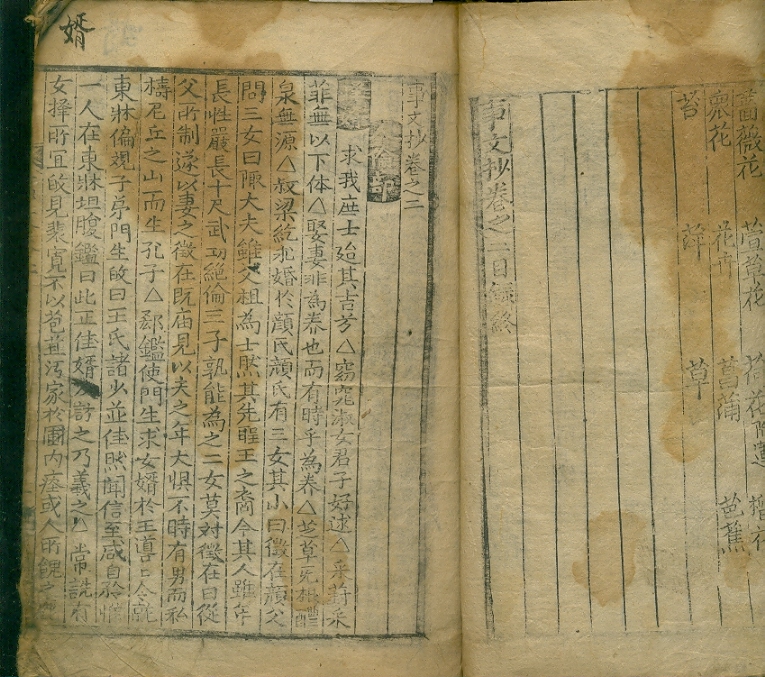 薔薇花 萱草花
兜花 花卉 菖蒲 芭蕉
苔 萍 草
事文抄卷之二目錄終
婿
事文抄卷之二
求我庶士殆其吉兮△窈窕淑女君子好逑△采葑采
菲無以下体△娶妻非為养也而有時乎為养△芝草无根醴
泉無源△叔梁紇求婚於顔氏顔氏有三女其小曰徵在顔父
問三女曰陬大夫雖父祖為士然其先聖王之裔今其人雖年
長性嚴長十尺武功絶倫三子孰能為之二女莫対徵在曰從
父所制遂以妻之徵在既庙見以夫之年大惧不時有男而私
禱尼丘之山而生孔子△郄鑑使門生求女婿於王導〻令就
東牀偏覌子弟門生皈曰王氏諸少並佳然聞信至咸自矜惟
一人在東牀坦腹鑑曰此正佳婿及訪之乃羲之△常詵有
女择所宜皈見裴寛不以苞苴汚家於圃内瘞或人所餽之